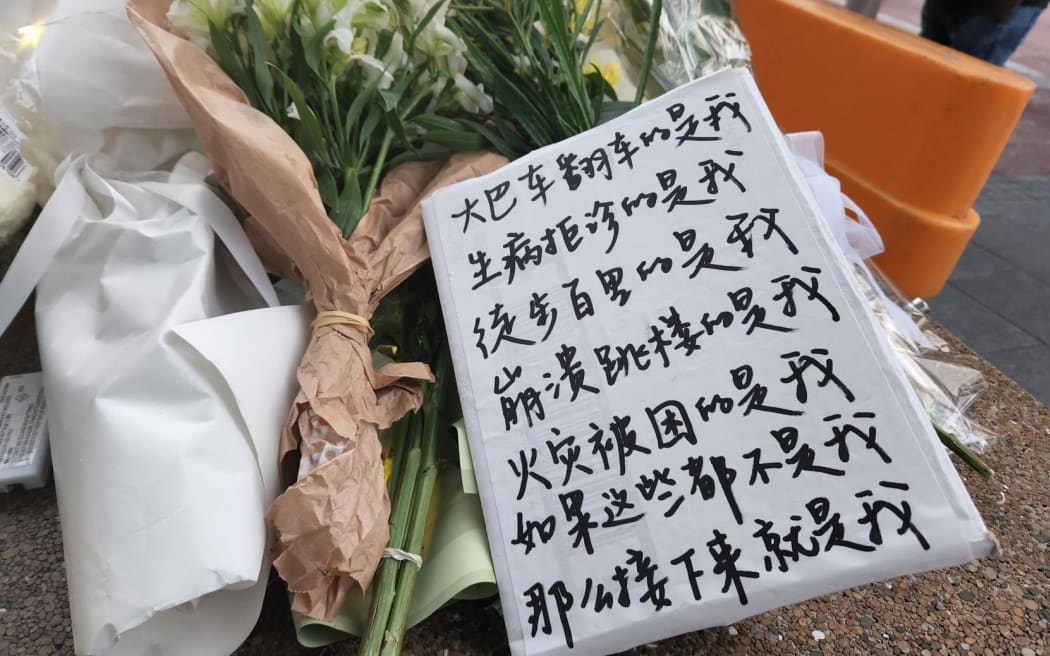 大巴车翻车的是我
生病拒诊的是我
徒步百里的是我
崩溃跳楼的是我
火灾被困的是我
如果这些都不是我
那么接下来就是我